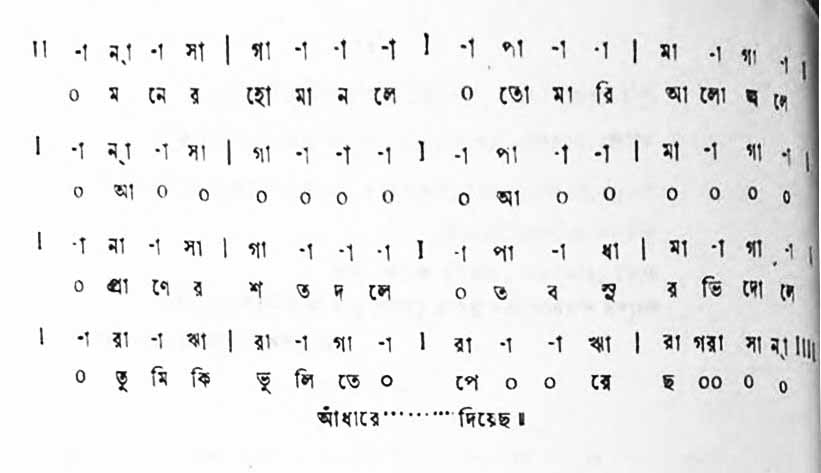 II -া ন্‌া -া সা | গা -া -া -া I -া পা -া -া | মা -া গা -া |
০ ম নে র হো মা ন লে ০ তো মা রি আ লো জ্ব লে
I -া ন্‌া -া সা | গা -া -া -া I -া পা -া -া | মা -া গা -া |
০ আ ০ ০ ০ ০ ০ ০ ০ আ ০ ০ ০ ০ ০ ০
I -া না -া সা | গা -া -া -া I -া পা -া ধা | মা -া গা -া |
০ প্রা ণে র শ ত দ লে ০ ত ব সু র ভি দো লে
I -া রা -া ঋা | রা -া গা -া I রা -া -া ঋা | রা গরা সা ন্‌া IIII
০ তু মি কি ভু লি তে ০ পে ০ ০ রে ছ ০০ ০ ০
আঁধারে·········দিয়েছ॥